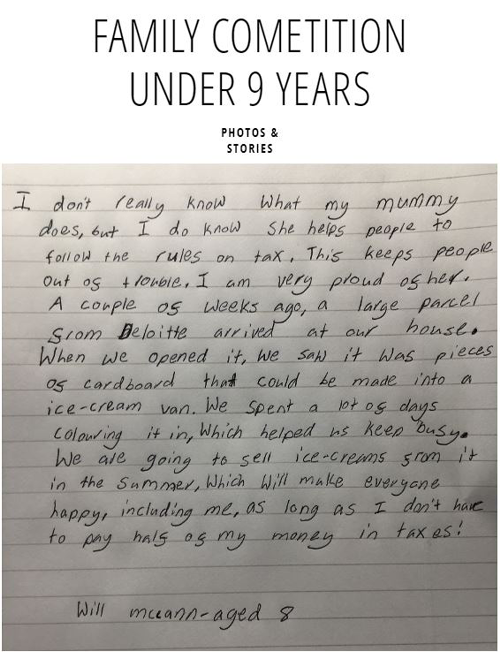 FAMILY COMETITION
UNDER 9 YEARS
PHOTOS &
STORIES
I don't really know what my mummy
does, but I do know she helps people to
follow the rules on tax. This keeps people
out of trouble. I am very proud of her.
A couple of weeks ago, a large parcel
from Deloitte arrived at our house.
When we opened it, we saw it was pieces
of cardboard that could be made into a
ice-cream van. We spent a lot of days
colouring it in, which helped us keep busy.
We are going to sell ice-creams from it
in the summer, which will make everyone
happy, including me, as long as I don't have
to pay half of my money in taxes!
Will mccann-aged 8